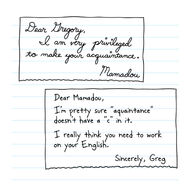 Dear Gregory,
I am very privileged
to make your acquaintance.
Mamadou
Dear Mamadou,
I'm pretty sure "aquaintance"
doesn't have a "c" in it.
I really think you need to work
on your English.
Sincerely, Greg